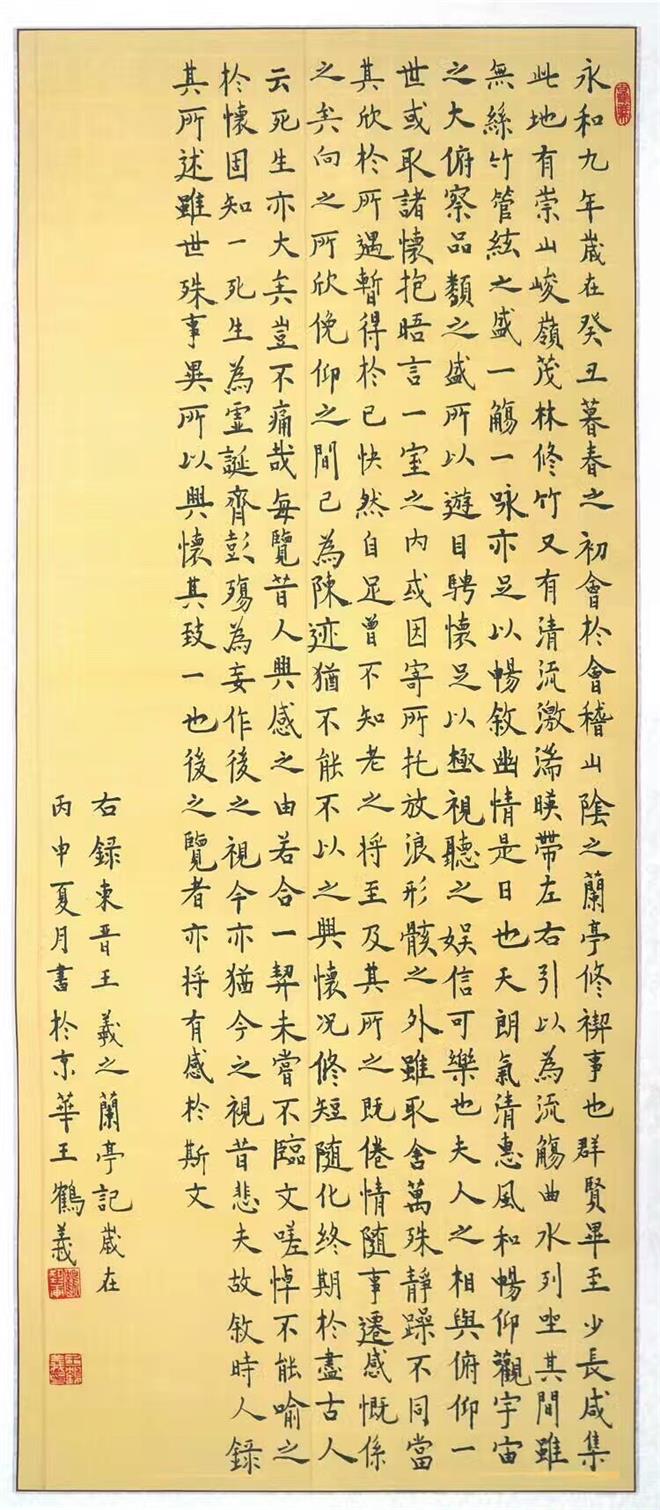 永和九年歲在癸丑暮春之初會於會稽山陰之蘭亭修禊事也群賢畢至少長咸集
此地有崇山峻嶺茂林修竹又有清流激湍暎帶左右引以為流觴曲水列坐其間雖
無絲竹管絃之盛一觴一咏亦足以暢敘幽情是日也天朗氣清惠風和暢仰觀宇宙
之大俯察品類之盛所以遊目騁懷足以極視聽之娛信可樂也夫人之相與俯仰一
世或取諸懷抱晤言一室之內或因寄所托放浪形骸之外雖取舍萬殊靜躁不同當
其欣於所遇暫得於己快然自足曾不知老之將至及其所之既倦情隨事遷感慨係
之矣向之所欣俛仰之間已為陳迹猶不能不以之興懷況修短隨化終期於盡古人
云死生亦大矣豈不痛哉每覽昔人興感之由若合一契未嘗不臨文嗟悼不能喻之
於懷固知一死生為虛誕齊彭殤為妄作後之視今亦猶今之視昔悲夫故敘時人錄
其所述雖世殊事異所以興懷其致一也後之覽者亦將有感於斯文
右錄東晉王羲之蘭亭記歲在
丙申夏月書於京華王鶴義